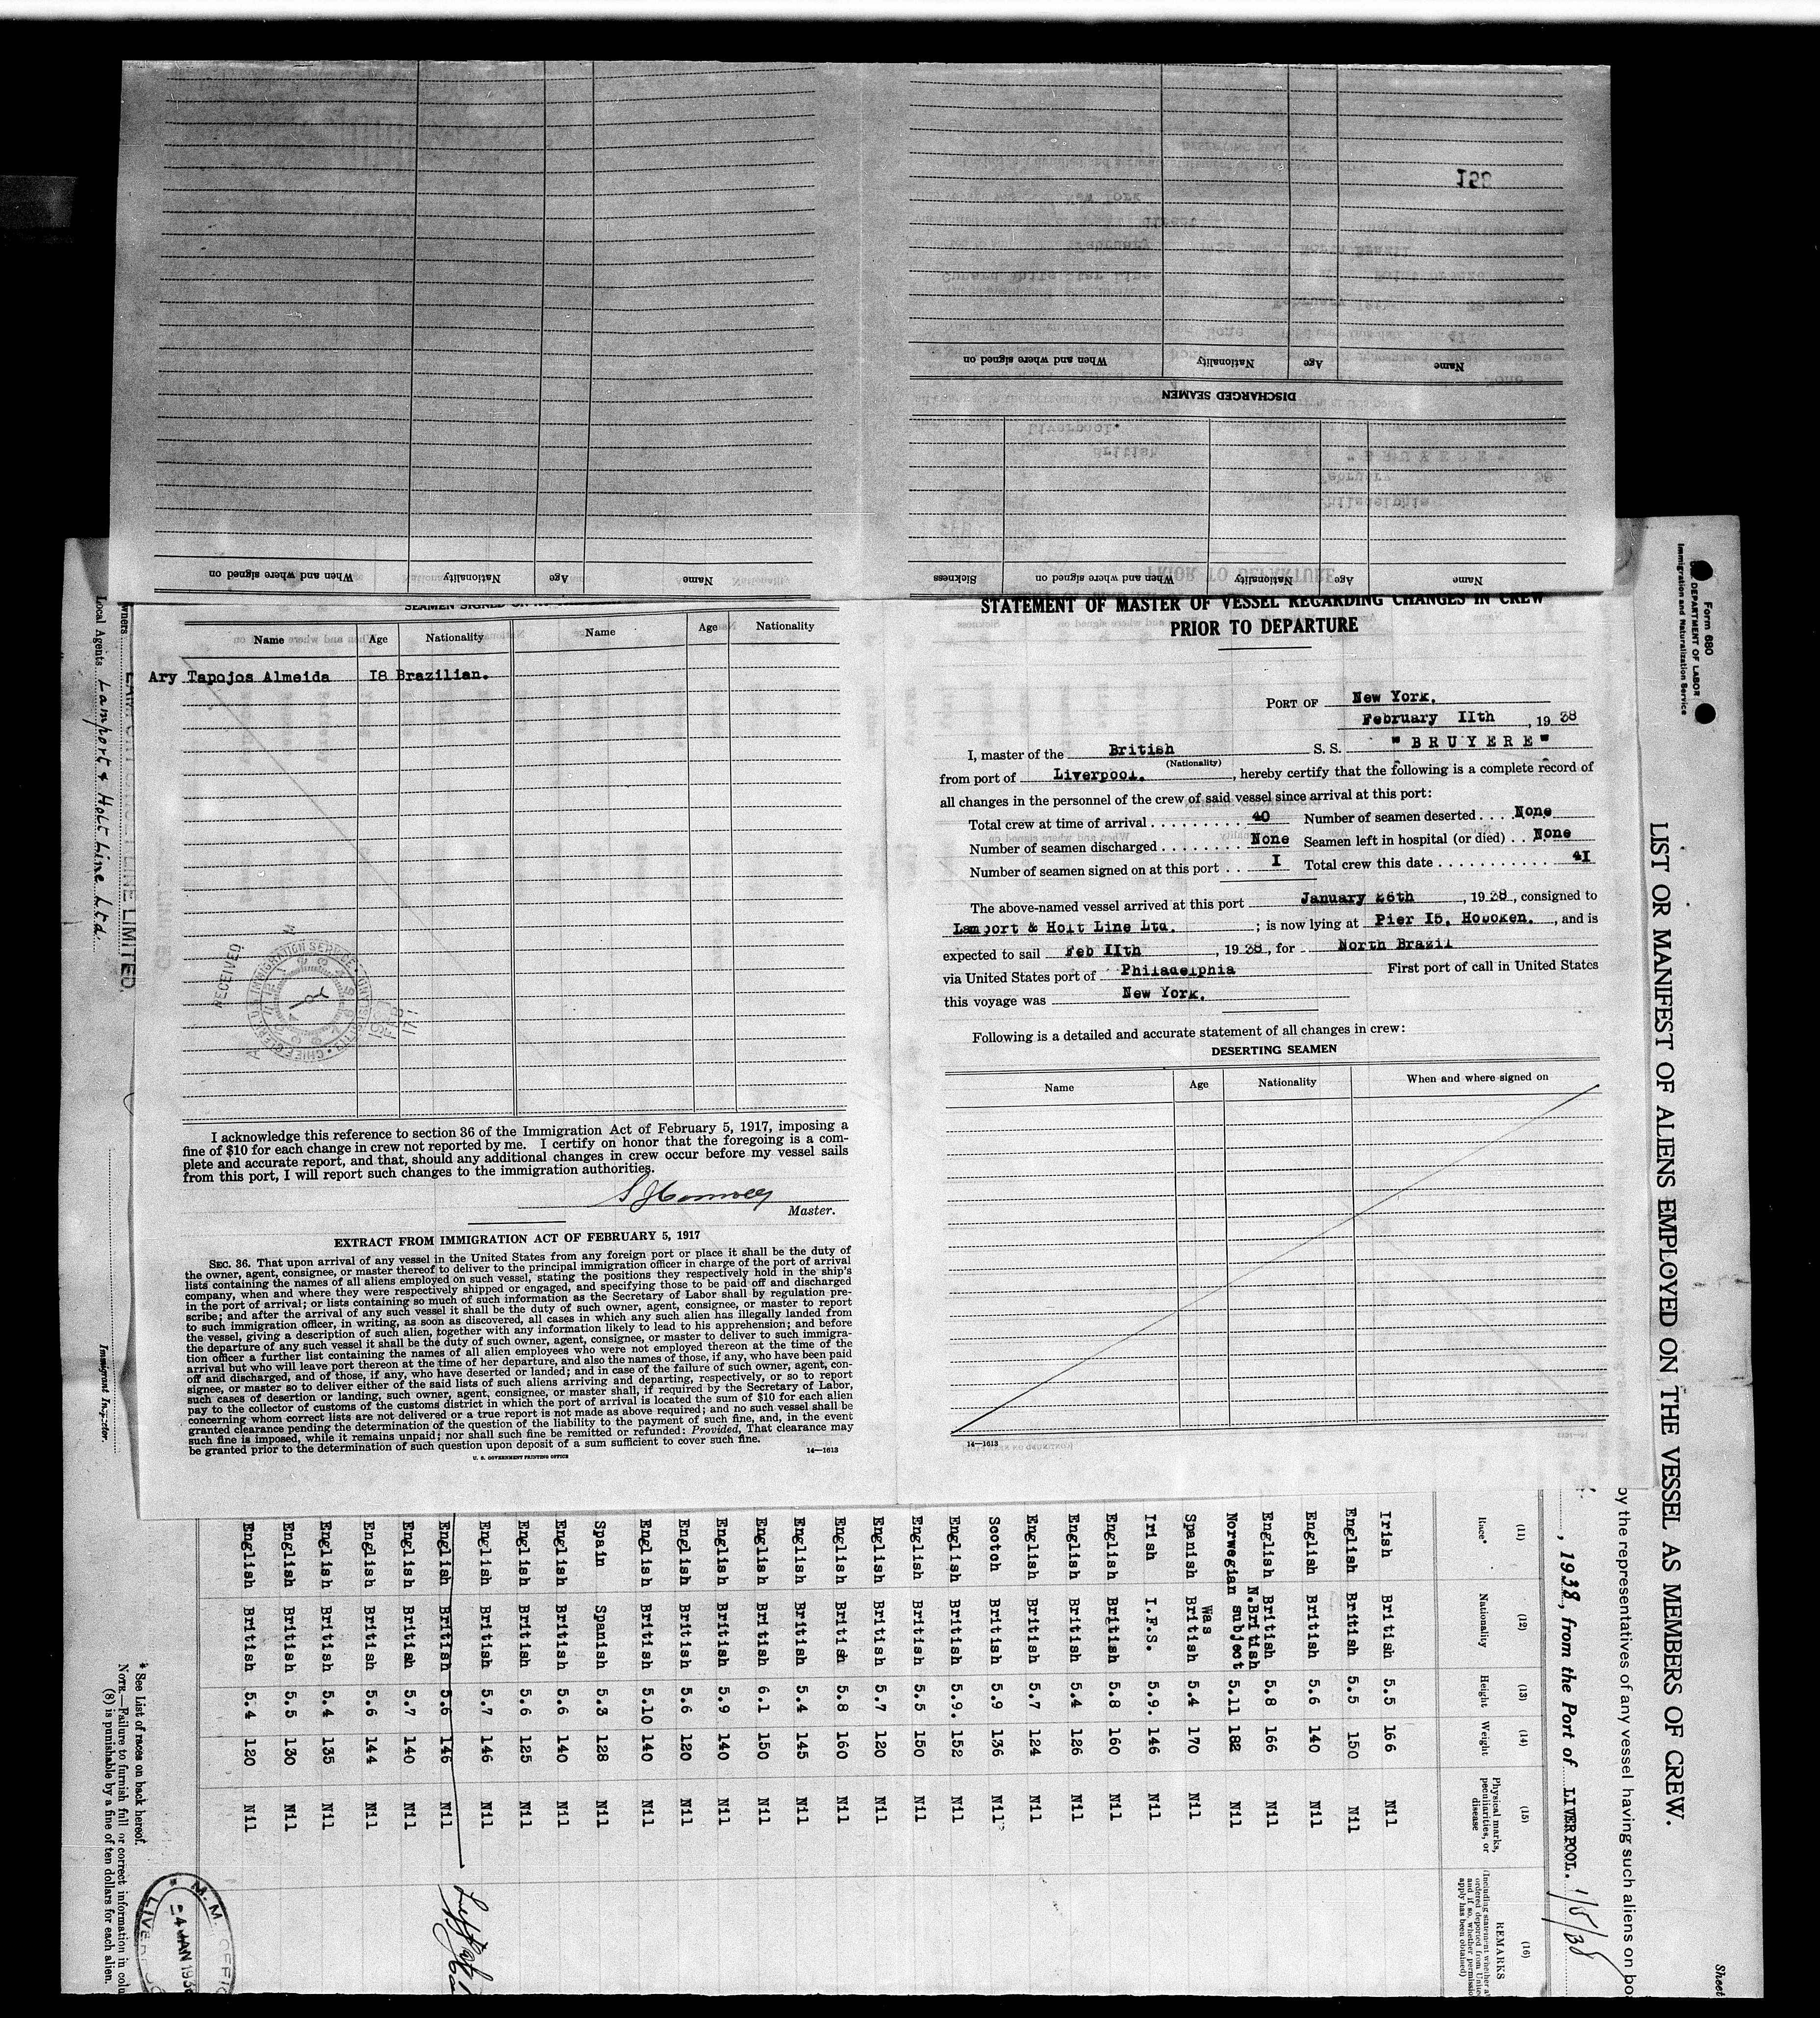 Name
Nationality
Age
When and where signed on
DISCHARGED SEAMEN
Name
Age
Nationality
When and where signed on
Name
Age
Nationality
When and where signed on
Sickness
Name
Age
Nationality
Name
Age
Nationality
Ary Tapojos Almeida I8 Brazilian.
RECEIVED
I acknowledge this reference to section 36 of the Immigration Act of February 5, 1917, imposing a
fine of $10 for each change in crew not reported by me. I certify on honor that the foregoing is a com-
plete and accurate report, and that, should any additional changes in crew occur before my vessel sails
from this port, I will report such changes to the immigration authorities.
Master.
EXTRACT FROM IMMIGRATION ACT OF FEBRUARY 5, 1917
SEC. 36. That upon arrival of any vessel in the United States from any foreign port or place it shall be the duty of
the owner, agent, consignee, or master thereof to deliver to the principal immigration officer in charge of the port of arrival
lists containing the names of all aliens employed on such vessel, stating the positions they respectively hold in the ship's
company, when and where they were respectively shipped or engaged, and specifying those to be paid off and discharged
in the port of arrival; or lists containing so much of such information as the Secretary of Labor shall by regulation pre-
scribe; and after the arrival of any such vessel it shall be the duty of such owner, agent, consignee, or master to report
to such immigration officer, in writing, as soon as discovered, all cases in which any such alien has illegally landed from
the vessel, giving a description of such alien, together with any information likely to lead to his apprehension; and before
the departure of any such vessel it shall be the duty of such owner, agent, consignee, or master to deliver to such immigra-
tion officer a further list containing the names of all alien employees who were not employed thereon at the time of the
arrival but who will leave port thereon at the time of her departure, and also the names of those, if any, who have been paid
off and discharged, and of those, if any, who have deserted or landed; and in case of the failure of such owner, agent, con-
signee, or master so to deliver either of the said lists of such aliens arriving and departing, respectively, or so to report
such cases of desertion or landing, such owner, agent, consignee, or master shall, if required by the Secretary of Labor,
pay to the collector of customs of the customs district in which the port of arrival is located the sum of $10 for each alien
concerning whom correct lists are not delivered or a true report is not made as above required; and no such vessel shall be
granted clearance pending the determination of the question of the liability to the payment of such fine, and, in the event
such fine is imposed, while it remains unpaid; nor shall such fine be remitted or refunded: Provided, That clearance may
be granted prior to the determination of such question upon deposit of a sum sufficient to cover such fine.
14—1613
U. S. GOVERNMENT PRINTING OFFICE
STATEMENT OF MASTER OF VESSEL REGARDING CHANGES IN CREW
PRIOR TO DEPARTURE
PORT OF New York.
February IIth , 19 38
I, master of the British S. S. "BRUYERE"
(Nationality)
from port of Liverpool. , hereby certify that the following is a complete record of
all changes in the personnel of the crew of said vessel since arrival at this port:
Total crew at time of arrival 40 Number of seamen deserted None
Number of seamen discharged None Seamen left in hospital (or died) None
Number of seamen signed on at this port I Total crew this date 4I
The above-named vessel arrived at this port January 26th , 19 38, consigned to
Lamport & Holt Line Ltd. ; is now lying at Pier I5, Hoboken. , and is
expected to sail Feb IIth , 19 38, for North Brazil
via United States port of Philadelphia First port of call in United States
this voyage was New York.
Following is a detailed and accurate statement of all changes in crew:
DESERTING SEAMEN
Name
Age
Nationality
When and where signed on
14—1613
Form 680
U. S. DEPARTMENT OF LABOR
Immigration and Naturalization Service
Sheet
LIST OR MANIFEST OF ALIENS EMPLOYED ON THE VESSEL AS MEMBERS OF CREW.
by the representatives of any vessel having such aliens on
, 1938, from the Port of LIVERPOOL. 1/5/38
(11) (12) (13) (14) (15) (16)
Race* Nationality Height Weight Physical marks, peculiarities, or disease REMARKS
Irish British 5.5 166 Nil
English British 5.5 150 Nil
English British 5.6 140 Nil
English British 5.8 166 Nil
N.British
Norwegian subject 5.11 182 Nil
Was
Spanish British 5.4 170 Nil
Irish I.F.S. 5.9. 146 Nil
English British 5.8 160 Nil
English British 5.4 126 Nil
English British 5.7 124 Nil
Scotch British 5.9 136 Nil
English British 5.9. 152 Nil
English British 5.5 150 Nil
English British 5.7 120 Nil
English British 5.8 160 Nil
English British 5.4 145 Nil
English British 6.1 150 Nil
English British 5.9 140 Nil
English British 5.6 120 Nil
English British 5.10 140 Nil
Spain Spanish 5.3 128 Nil
English British 5.6 140 Nil
English British 5.6 125 Nil
English British 5.7 146 Nil
English British 5.6 146 Nil
English British 5.7 140 Nil
English British 5.6 144 Nil
English British 5.4 135 Nil
English British 5.5 130 Nil
English British 5.4 120 Nil
* See List of races on back hereof.
NOTE.—Failure to furnish full or correct information in
(8) is punishable by a fine of ten dollars for each alien.
Local Agents Lamport & Holt Line Ltd.
Immigrant Inspector.